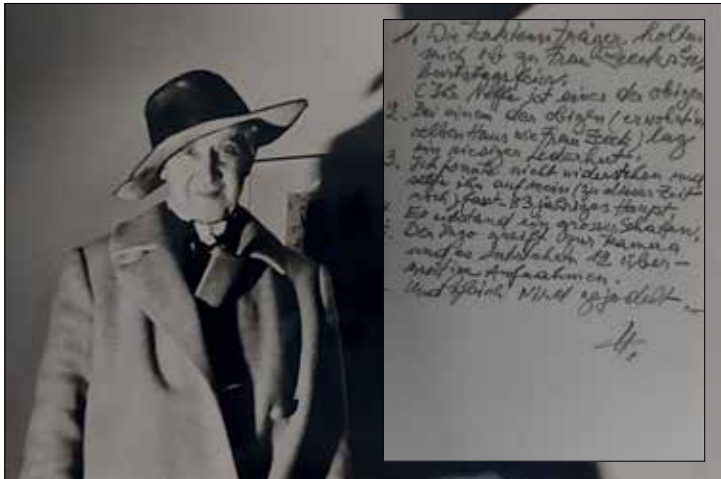 1. Die Träger holten
mich ab zu Frau Ge-
burtstagsfeier.
(Ihr Neffe ist einer der obigen
2. Bei einem der obigen (er wohnt im
selben Haus wie Frau ) lag
ein riesiger Lederhut.
3. Ich konnte nicht widerstehen und
ihn auf mein (zu dieser Zeit
noch) fast 83 jähriges Haupt.
Es entstand ein grosser Schatten.
Der Ingo greift zur Kamera
und es entstehen 12 über-
Aufnahmen.
Und nicht